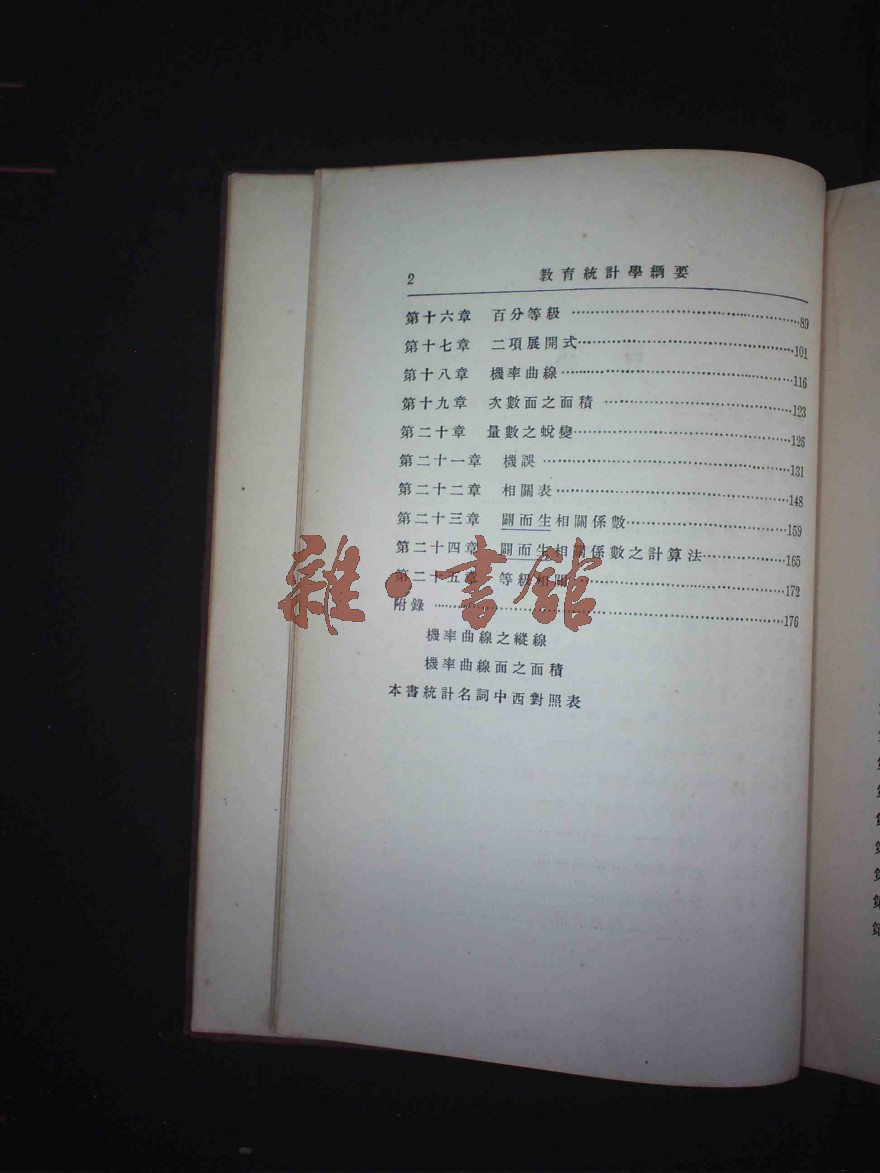 2 教育統計學綱要
第十六章 百分等級 ……89
第十七章 二項展開式……101
第十八章 機率曲線……116
第十九章 次數面之面積……123
第二十章 量數之蛻變……126
第二十一章 機誤……131
第二十二章 相關表……148
第二十三章 闢而生相關係數……159
第二十四章 闢而生相關係數之計算法……165
第二十五章 等級相關……172
附錄……176
機率曲線之縱線
機率曲線面之面積
本書統計名詞中西對照表
雜·書館
第
第
第
第
第
第